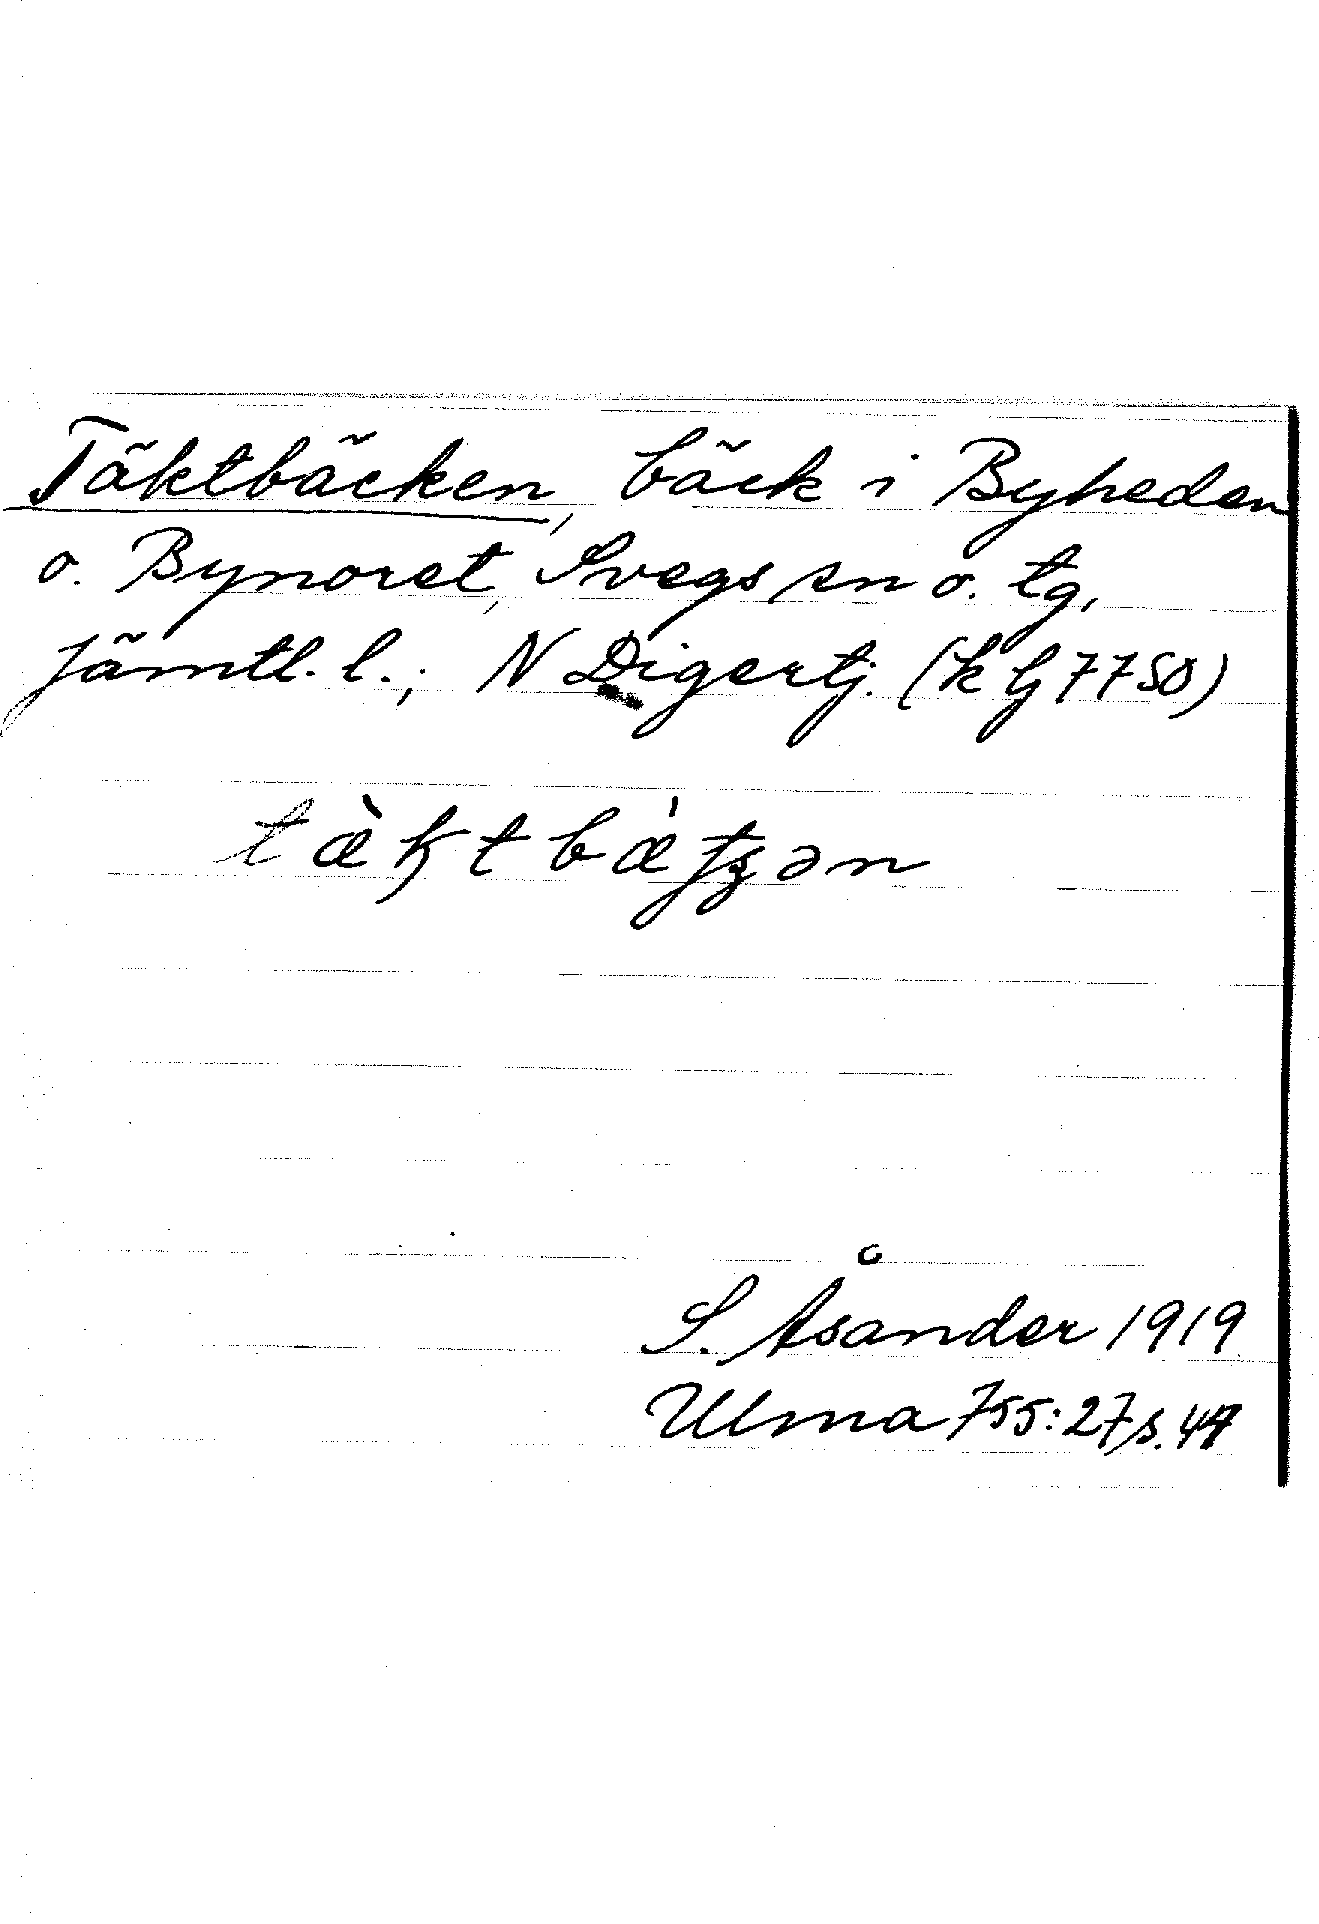 Täktbäcken, bäck i Byheden
o. Bynoret, Svegs sn o. tg,
Jämtl. l.; N Digertj. (k lj 7750)
tæ̀ktbæ̀tʂən
S. Åsander 1919
Ulma 755:27 s. 47